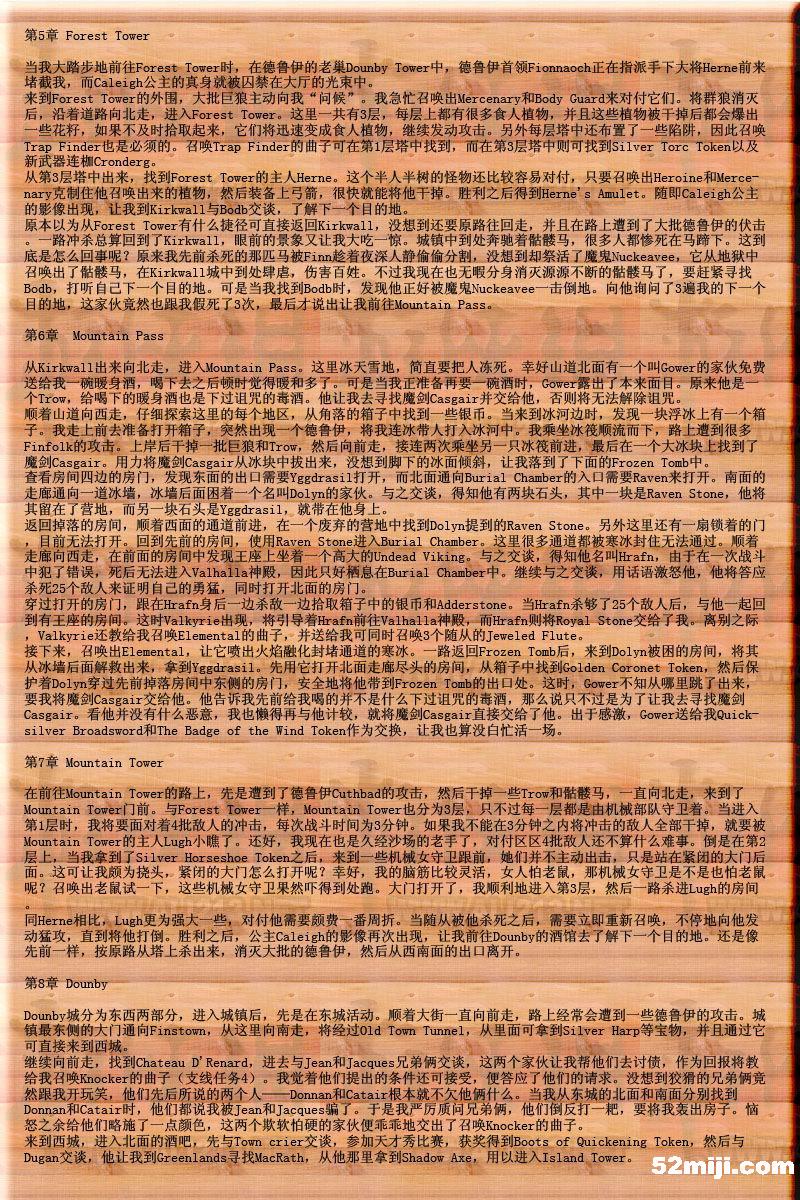 第5章 Forest Tower
当我大踏步地前往Forest Tower时，在德鲁伊的老巢Dounby Tower中，德鲁伊首领Fionnaoch正在指派手下大将Herne前来
堵截我，而Caleigh公主的真身就被囚禁在大厅的光束中。
来到Forest Tower的外围，大批巨狼主动向我“问候”。我急忙召唤出Mercenary和Body Guard来对付它们。将群狼消灭
后，沿着道路向北走，进入Forest Tower。这里一共有3层，每层上都有很多食人植物，并且这些植物被干掉后都会爆出
一些花籽，如果不及时拾取起来，它们将迅速变成食人植物，继续发动攻击。另外每层塔中还布置了一些陷阱，因此召唤
Trap Finder也是必须的。召唤Trap Finder的曲子可在第1层塔中找到，而在第3层塔中则可找到Silver Torc Token以及
新武器连枷Cronderg。
从第3层塔中出来，找到Forest Tower的主人Herne。这个半人半树的怪物还比较容易对付，只要召唤出Heroine和Merce-
nary克制住他召唤出来的植物，然后装备上弓箭，很快就能将他干掉。胜利之后得到Herne's Amulet。随即Caleigh公主
的影像出现，让我到Kirkwall与Bodb交谈，了解下一个目的地。
原本以为从Forest Tower有什么捷径可直接返回Kirkwall，没想到还要原路往回走，并且在路上遭到了大批德鲁伊的伏击
。一路冲杀总算回到了Kirkwall，眼前的景象又让我大吃一惊。城镇中到处奔驰着骷髅马，很多人都惨死在马蹄下。这到
底是怎么回事呢？原来我先前杀死的那匹马被Finn趁着夜深人静偷偷分割，没想到却祭活了魔鬼Nuckeavee，它从地狱中
召唤出了骷髅马，在Kirkwall城中到处肆虐，伤害百姓。不过我现在也无暇分身消灭源源不断的骷髅马了，要赶紧寻找
Bodb，打听自己下一个目的地。可是当我找到Bodb时，发现他正好被魔鬼Nuckeavee一击倒地。向他询问了3遍我的下一个
目的地，这家伙竟然也跟我假死了3次，最后才说出让我前往Mountain Pass。
第6章 Mountain Pass
从Kirkwall出来向北走，进入Mountain Pass。这里冰天雪地，简直要把人冻死。幸好山道北面有一个叫Gower的家伙免费
送给我一碗暖身酒，喝下去之后顿时觉得暖和多了。可是当我正准备再要一碗酒时，Gower露出了本来面目。原来他是一
个Trow，给喝下的暖身酒也是下过诅咒的毒酒。他让我去寻找魔剑Casgair并交给他，否则将无法解除诅咒。
顺着山道向西走，仔细探索这里的每个地区，从角落的箱子中找到一些银币。当来到冰河边时，发现一块浮冰上有一个箱
子。我走上前去准备打开箱子，突然出现一个德鲁伊，将我连冰带人打入冰河中。我乘坐冰筏顺流而下，路上遭到很多
Finfolk的攻击。上岸后干掉一批巨狼和Trow，然后向前走，接连两次乘坐另一只冰筏前进，最后在一个大冰块上找到了
魔剑Casgair。用力将魔剑Casgair从冰块中拔出来，没想到脚下的冰面倾斜，让我落到了下面的Frozen Tomb中。
查看房间四边的房门，发现东面的出口需要Yggdrasil打开，而北面通向Burial Chamber的入口需要Raven来打开。南面的
走廊通向一道冰墙，冰墙后面困着一个名叫Dolyn的家伙。与之交谈，得知他有两块石头，其中一块是Raven Stone，他将
其留在了营地，而另一块石头是Yggdrasil，就带在他身上。
返回掉落的房间，顺着西面的通道前进，在一个废弃的营地中找到Dolyn提到的Raven Stone。另外这里还有一扇锁着的门
，目前无法打开。回到先前的房间，使用Raven Stone进入Burial Chamber。这里很多通道都被寒冰封住无法通过。顺着
走廊向西走，在前面的房间中发现王座上坐着一个高大的Undead Viking。与之交谈，得知他名叫Hrafn，由于在一次战斗
中犯了错误，死后无法进入Valhalla神殿，因此只好栖息在Burial Chamber中。继续与之交谈，用话语激怒他，他将答应
杀死25个敌人来证明自己的勇猛，同时打开北面的房门。
穿过打开的房门，跟在Hrafn身后一边杀敌一边拾取箱子中的银币和Adderstone。当Hrafn杀够了25个敌人后，与他一起回
到有王座的房间。这时Valkyrie出现，将引导着Hrafn前往Valhalla神殿，而Hrafn则将Royal Stone交给了我。离别之际
，Valkyrie还教给我召唤Elemental的曲子，并送给我可同时召唤3个随从的Jeweled Flute。
接下来，召唤出Elemental，让它喷出火焰融化封堵通道的寒冰。一路返回Frozen Tomb后，来到Dolyn被困的房间，将其
从冰墙后面解救出来，拿到Yggdrasil。先用它打开北面走廊尽头的房间，从箱子中找到Golden Coronet Token，然后保
护着Dolyn穿过先前掉落房间中东侧的房门，安全地将他带到Frozen Tomb的出口处。这时，Gower不知从哪里跳了出来，
要我将魔剑Casgair交给他。他告诉我先前给我喝的并不是什么下过诅咒的毒酒，那么说只不过是为了让我去寻找魔剑
Casgair。看他并没有什么恶意，我也懒得再与他计较，就将魔剑Casgair直接交给了他。出于感激，Gower送给我Quick-
silver Broadsword和The Badge of the Wind Token作为交换，让我也算没白忙活一场。
第7章 Mountain Tower
在前往Mountain Tower的路上，先是遭到了德鲁伊Cuthbad的攻击，然后干掉一些Trow和骷髅马，一直向北走，来到了
Mountain Tower门前。与Forest Tower一样，Mountain Tower也分为3层，只不过每一层都是由机械部队守卫着。当进入
第1层时，我将要面对着4批敌人的冲击，每次战斗时间为3分钟。如果我不能在3分钟之内将冲击的敌人全部干掉，就要被
Mountain Tower的主人Lugh小瞧了。还好，我现在也是久经沙场的老手了，对付区区4批敌人还不算什么难事。倒是在第2
层上，当我拿到了Silver Horseshoe Token之后，来到一些机械女守卫跟前，她们并不主动出击，只是站在紧闭的大门后
面。这可让我颇为挠头，紧闭的大门怎么打开呢？幸好，我的脑筋比较灵活，女人怕老鼠，那机械女守卫是不是也怕老鼠
呢？召唤出老鼠试一下，这些机械女守卫果然吓得到处跑。大门打开了，我顺利地进入第3层，然后一路杀进Lugh的房间
。
同Herne相比，Lugh更为强大一些，对付他需要颇费一番周折。当随从被他杀死之后，需要立即重新召唤，不停地向他发
动猛攻，直到将他打倒。胜利之后，公主Caleigh的影像再次出现，让我前往Dounby的酒馆去了解下一个目的地。还是像
先前一样，按原路从塔上杀出来，消灭大批的德鲁伊，然后从西南面的出口离开。
第8章 Dounby
Dounby城分为东西两部分，进入城镇后，先是在东城活动。顺着大街一直向前走，路上经常会遭到一些德鲁伊的攻击。城
镇最东侧的大门通向Finstown，从这里向南走，将经过Old Town Tunnel，从里面可拿到Silver Harp等宝物，并且通过它
可直接来到西城。
继续向前走，找到Chateau D'Renard，进去与Jean和Jacques兄弟俩交谈，这两个家伙让我帮他们去讨债，作为回报将教
给我召唤Knocker的曲子（支线任务4）。我觉着他们提出的条件还可接受，便答应了他们的请求。没想到狡猾的兄弟俩竟
然跟我开玩笑，他们先后所说的两个人——Donnan和Catair根本就不欠他俩什么。当我从东城的北面和南面分别找到
Donnan和Catair时，他们都说我被Jean和Jacques骗了。于是我严厉质问兄弟俩，他们倒反打一耙，要将我轰出房子。恼
怒之余给他们略施了一点颜色，这两个欺软怕硬的家伙便乖乖地交出了召唤Knocker的曲子。
来到西城，进入北面的酒吧，先与Town crier交谈，参加天才秀比赛，获奖得到Boots of Quickening Token，然后与
Dugan交谈，他让我到Greenlands寻找MacRath，从他那里拿到Shadow Axe，用以进入Island Tower。
52miji.com